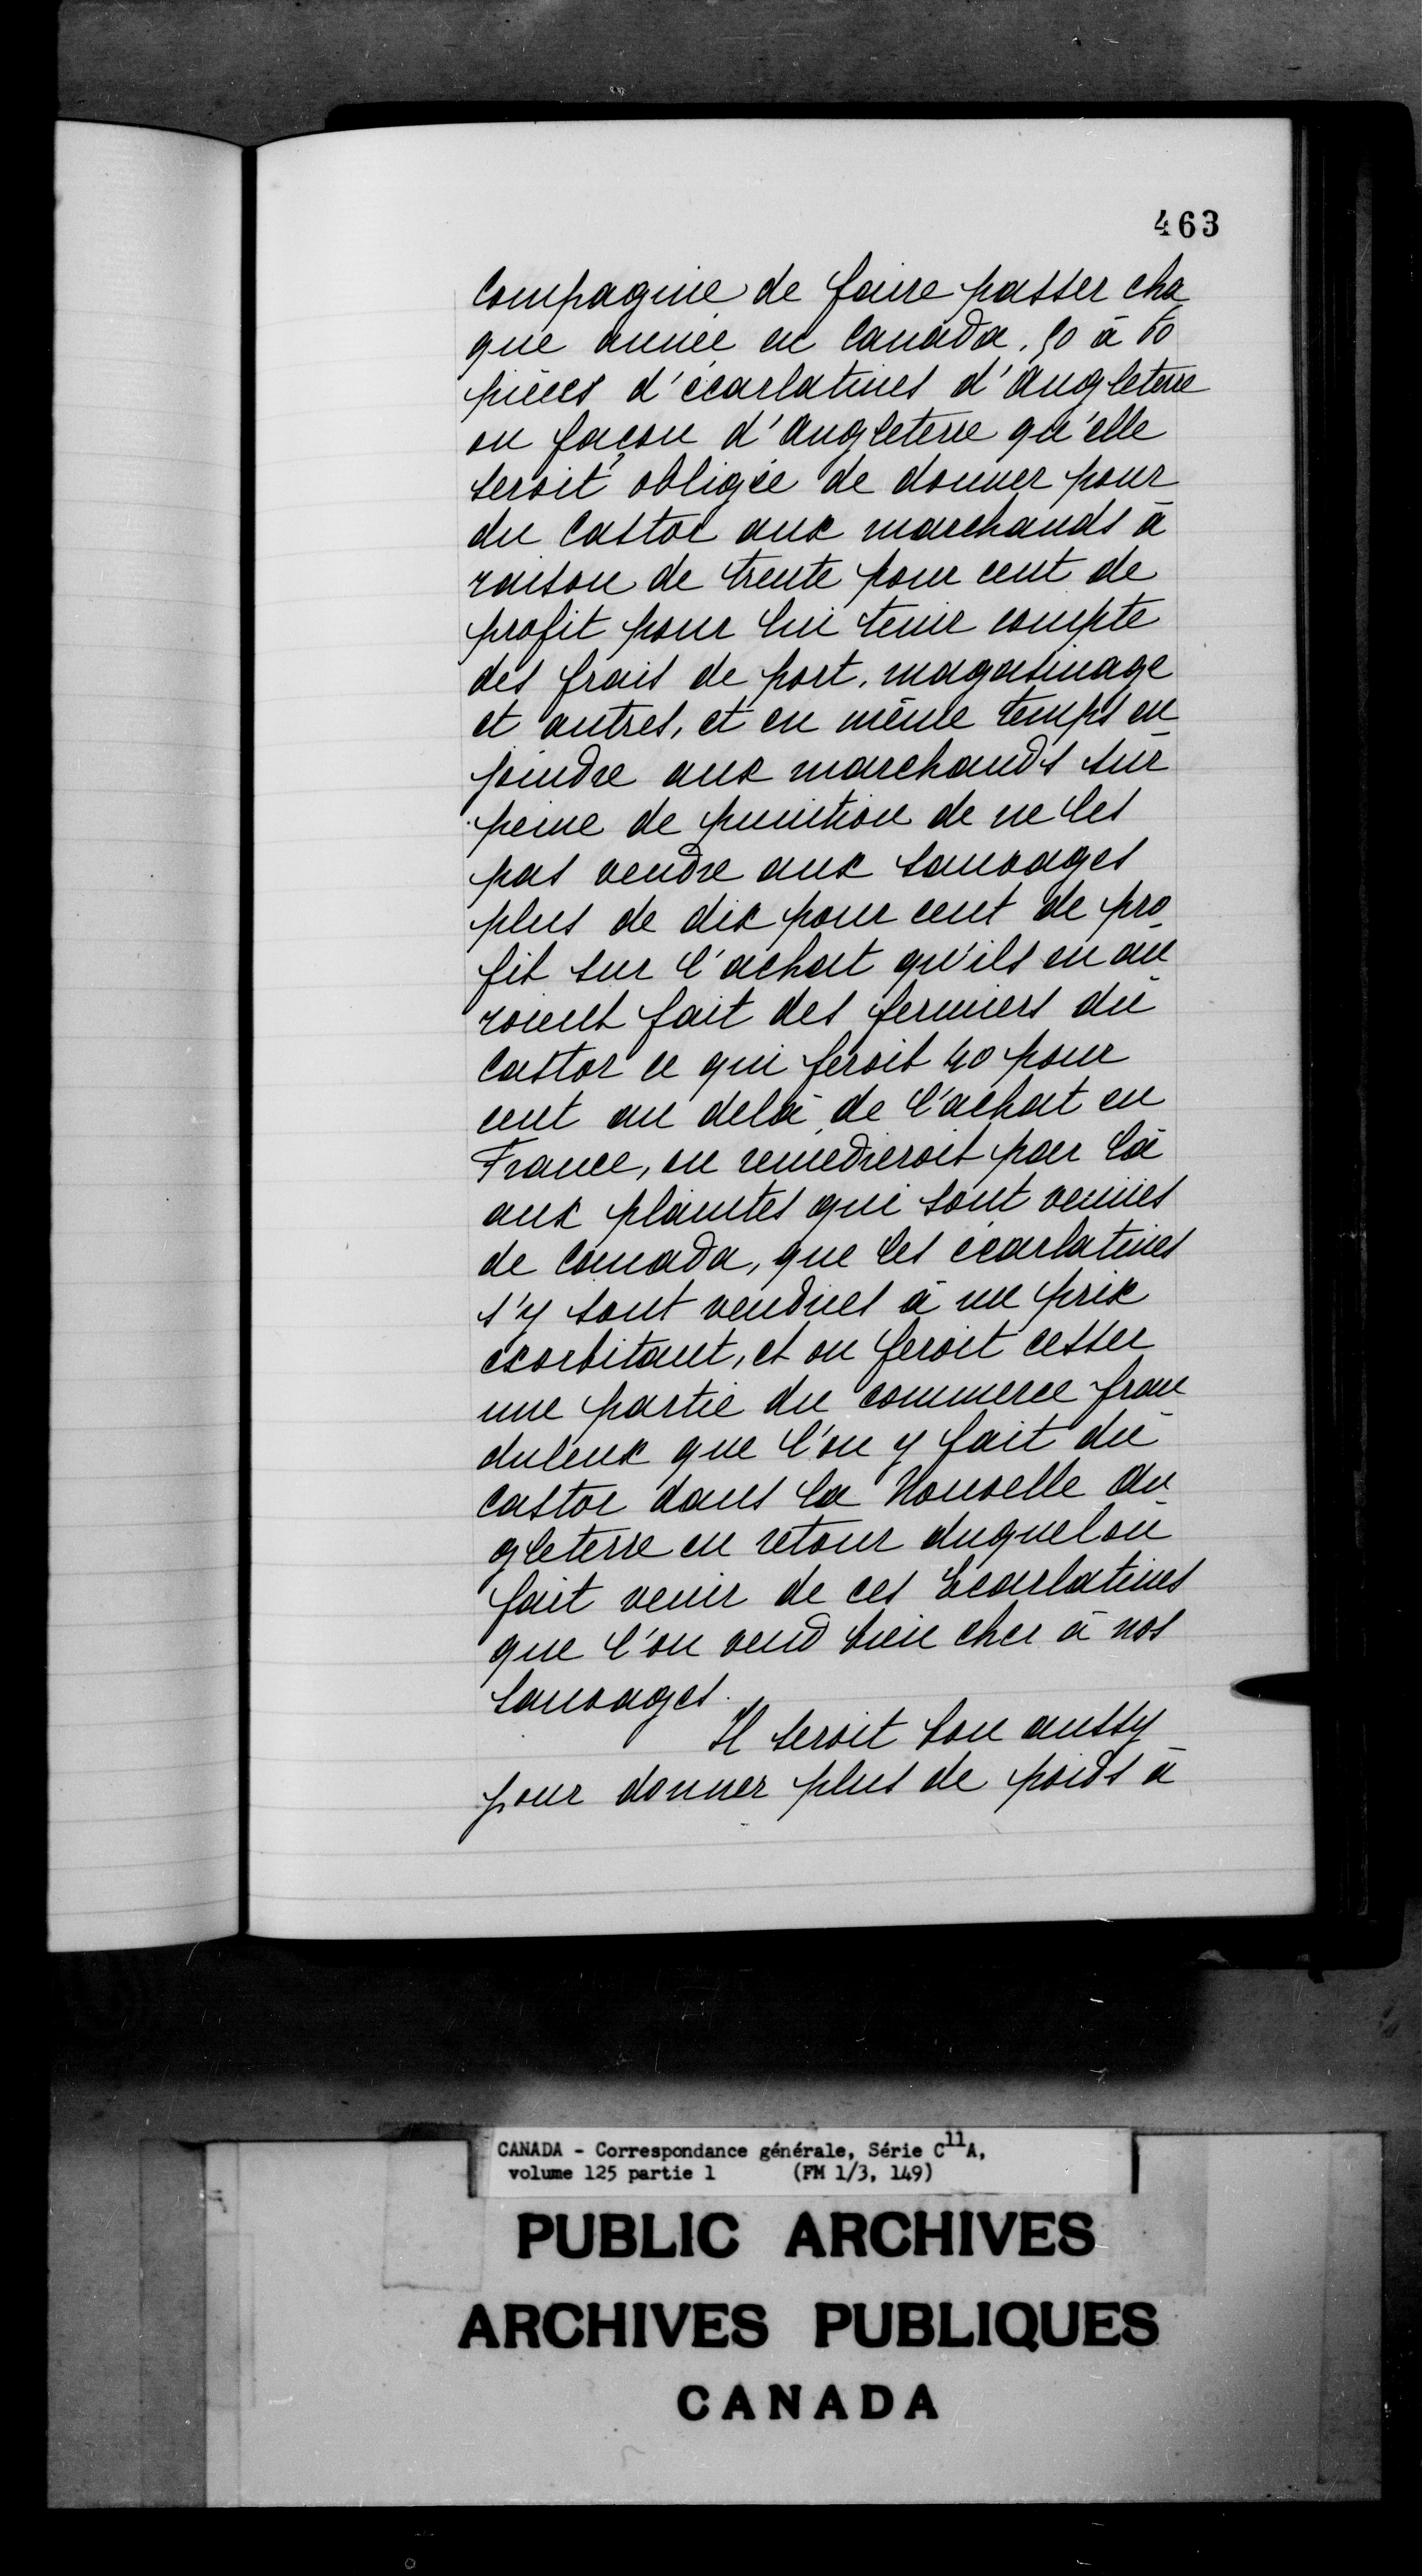 463
Compagnie de faire passer cha
que année en Canada. 50 à 60
pièces d'écarlatines d'Angleterre
ou façon d'Angleterre qu'elle
seroit obligée de donner pour
du Castor aux marchands à
raison de trente pour cent de
profit pour lui tenir compte
des frais de port, magasinage
et autres, et en même temps en_
joindre aux marchands sur
peine de punition de ne les
pas vendre aux Sauvages
plus de dix pour cent de pro_
fit sur l'achat qu'ils en au_
roient fait des fermiers du
Castor ce qui feroit 40 pour
cent au delà de l'achat en
France, on remedieroit par là
aux plaintes qui sont venües
de Canada, que les écarlatines
s'y sont vendues à un prix
exorbitant, et on feroit cesser
une partie du commerce frau
duleux que l'on y fait du
Castor dans la Nouvelle An_
gleterre en retour duquel on
fait venir de ces Ecarlatines
que l'on vend bien cher à nos
Sauvages.
Il seroit bon aussy
pour donner plus de poids à
CANADA - Correspondance générale, Série C11A,
volume 125 partie 1 (FM 1/3, 149)
PUBLIC ARCHIVES
ARCHIVES PUBLIQUES
CANADA